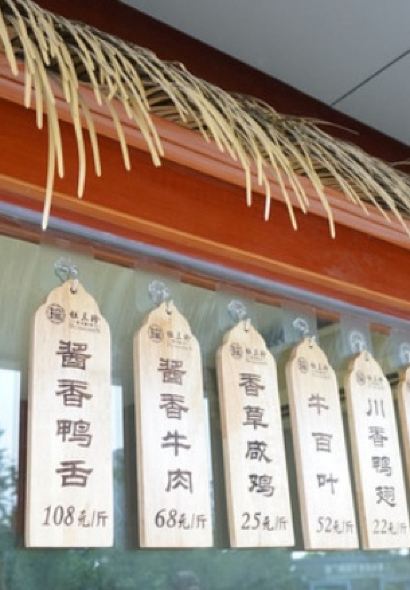 酱香鸭舌
108元/斤
酱香牛肉
68元/斤
香草咸鸡
25元/斤
牛百叶
52元/斤
川香鸭翅
22元/斤